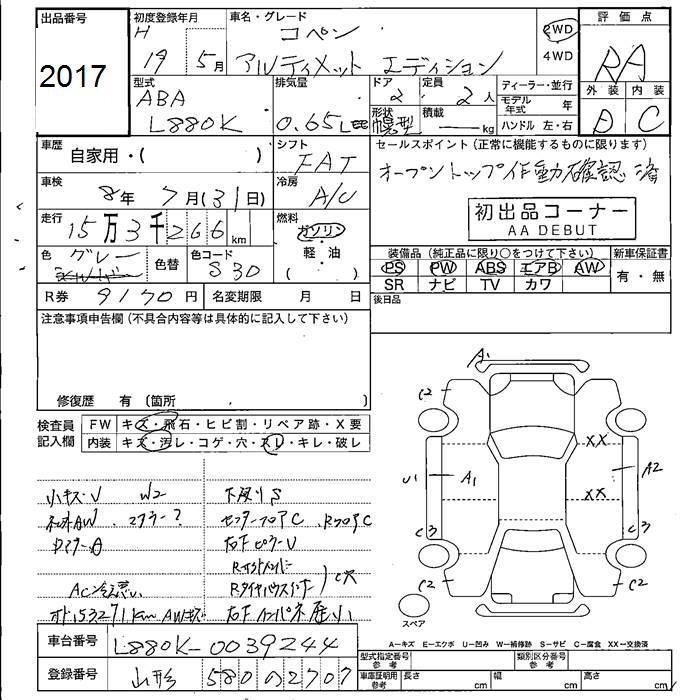 出品番号
2017
初度登録年月
H
19 5月
車名・グレード
コペン
アルティメット エディション
2WD
4WD
評価点
RA
外装 内装
D C
型式
ABA
L880K
排気量
0.65L
ドア
2
定員
2人
形状
幌型
積載
kg
ディーラー・並行
モデル年式 年
ハンドル 左・右
車歴
自家用・( )
シフト
FAT
セールスポイント (正常に機能するものに限ります)
オープントップ作動確認済
車検
8年 7月(31日)
冷房
A/C
初出品コーナー
AA DEBUT
走行
15万3千266km
燃料
ガソリン
軽・油
( )
色 グレー
色替
色コード
S30
装備品 (純正品に限り〇をつけて下さい)
PS PW ABS エアB AW
SR ナビ TV カワ
新車保証書
有・無
R券 9170円
名変期限 月 日
後日品
注意事項申告欄 (不具合内容等は具体的に記入して下さい)
修復歴 有 (箇所 )
検査員
記入欄
FW キズ・飛石・ヒビ割・リペア跡・X要
内装 キズ・汚レ・コゲ・穴・スレ・キレ・破レ
小キズ・U W2
下廻りS
センターフロアC RフロアC
右下ピラーU
Rサイドメンバー
Rタイヤハウスインナー
C穴
AC冷え悪い
オド153271km AWキズ
A1
C2
C2
XX
U1
A1
A2
XX
C3
C3
C2
C2
スペア
A-キズ E-エクボ U-凹み W-補修跡 S-サビ C-腐食 XX-交換済
車台番号
L880K-0039244
登録番号
山形 580 の 2707
型式指定番号
参考
類別区分番号
参考
車庫証明用
参考
長さ cm
幅 cm
高さ cm